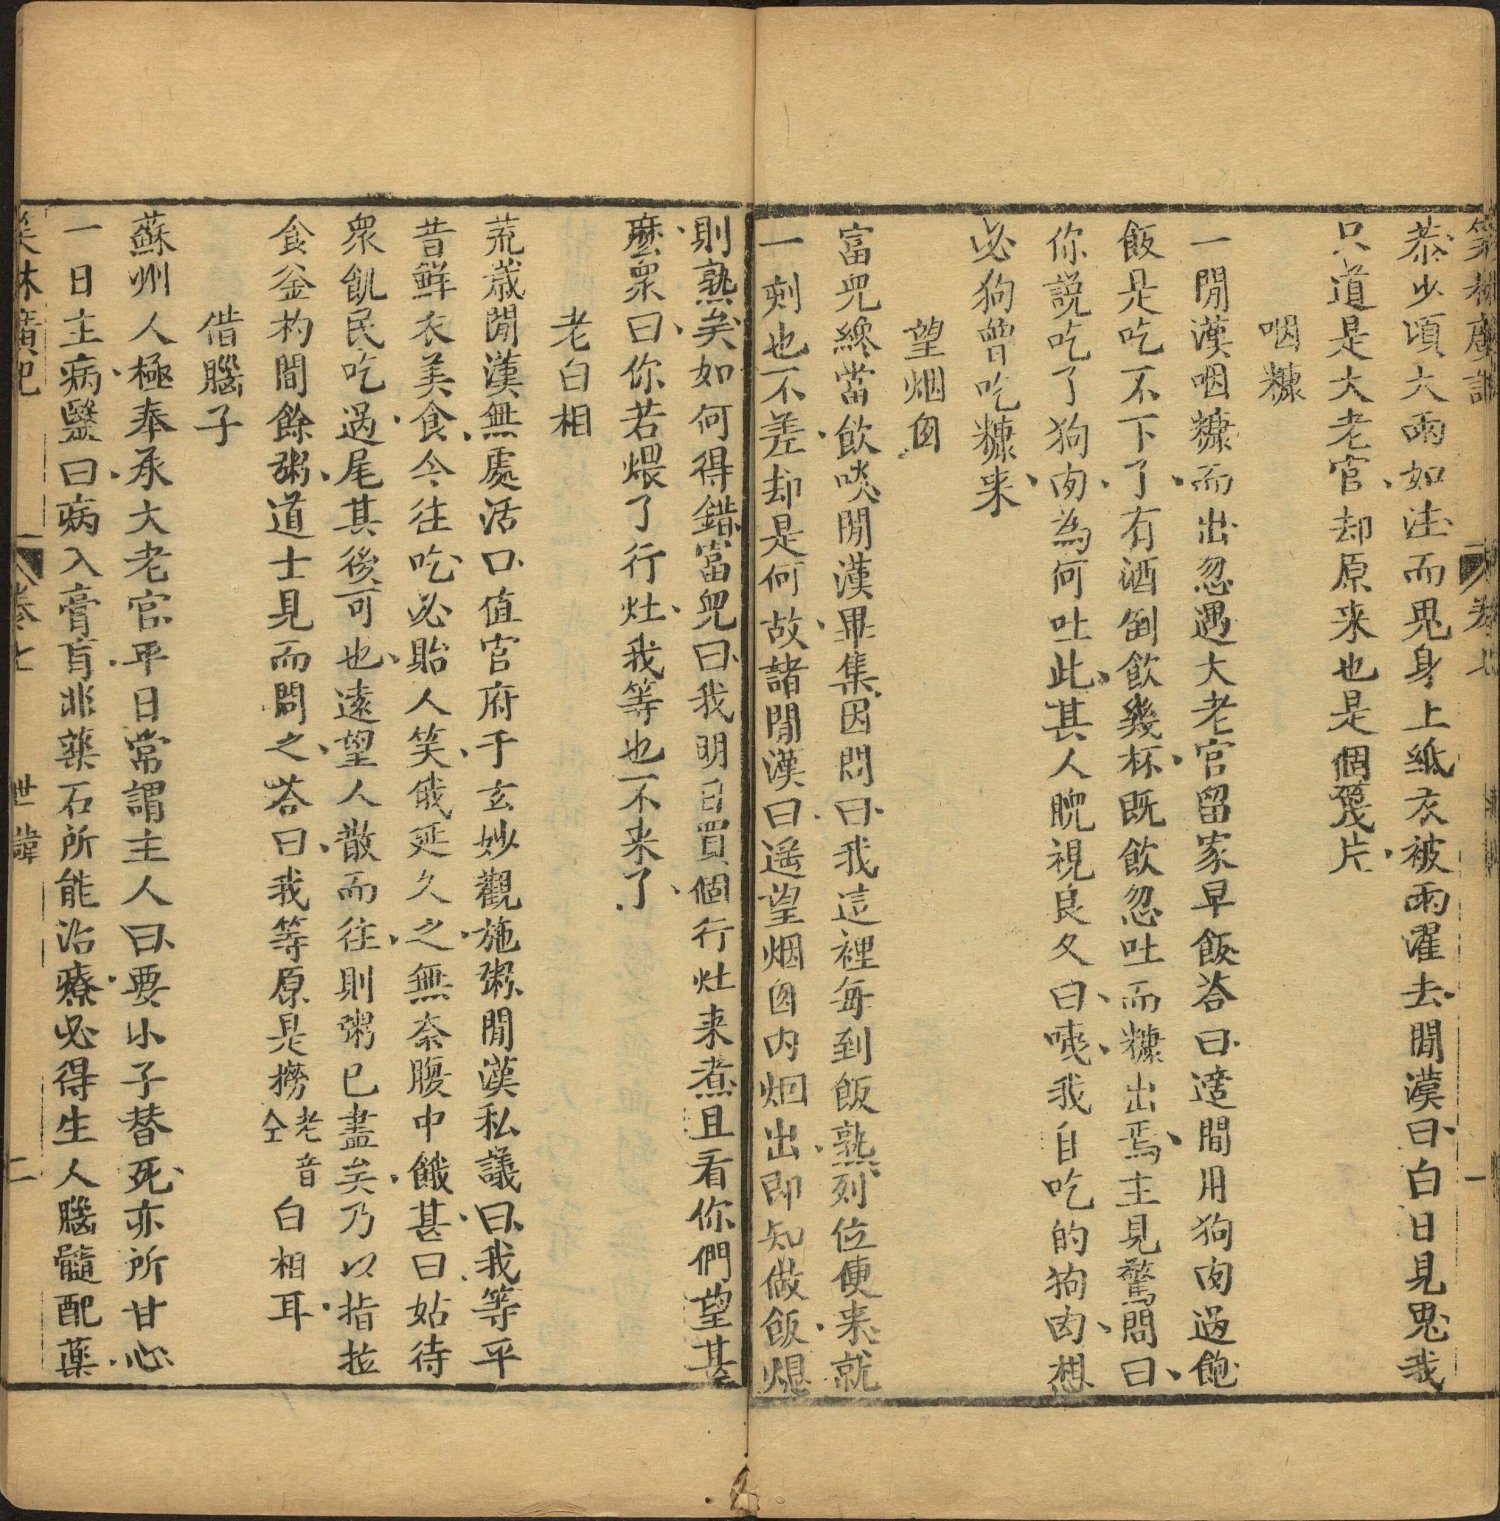 笑林廣記
卷七
一
恭少頃大雨如注而鬼身上紙衣被雨濯去閒漢曰白日見鬼我
只道是大老官却原来也是個篾片
咽糠
一閒漢咽糠而出忽遇大老官留家早飯荅曰適間用狗肉過飽
飯是吃不下了有酒倒飲幾杯既飲忽吐而糠出焉主見驚問曰
你説吃了狗肉為何吐此其人睨視良久曰咦我自吃的狗肉想
必狗曽吃糠来
望烟囱
富兒纔當飲啖閒漢畢集因問曰我這裡每到飯熟列位便来就
一刻也不差却是何故諸閒漢曰遥望烟囱内烟出即知做飯熄
則熟矣如何得錯富兒曰我明日買個行灶来煮且看你們望甚
麽衆曰你若煨了行灶我等也不来了
老白相
荒歳閒漢無處活口值官府于玄妙觀施粥閒漢私議曰我等平
昔鮮衣美食今往吃必貽人笑俄延久之無奈腹中餓甚曰姑待
衆飢民吃過尾其後可也遠望人散而往則粥已盡矣乃以指拉
食釜杓間餘粥道士見而問之荅曰我等原是撈老音仝白相耳
借腦子
蘇州人極奉承大老官平日常謂主人曰要小子替死亦所甘心
一日主病醫曰病入膏肓非藥石所能治療必得生人腦髓配藥
笑林廣記
卷七
世諱
二